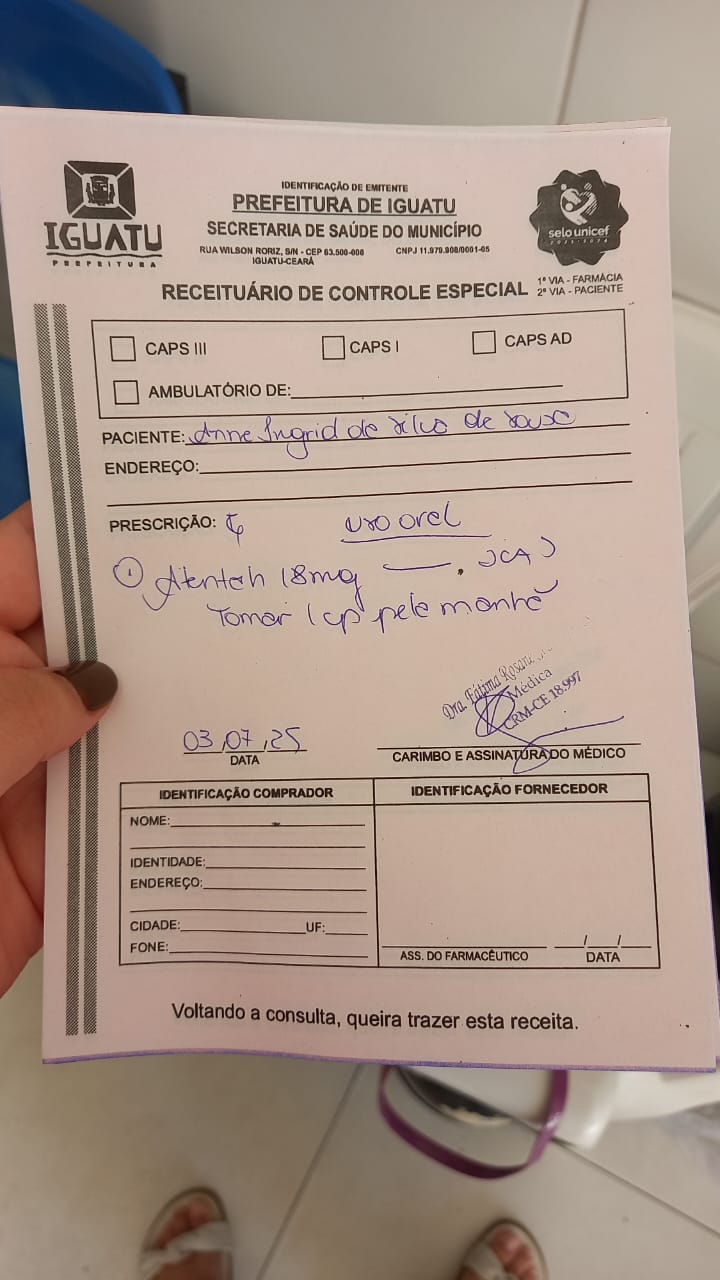 IGUATU
PREFEITURA
IDENTIFICAÇÃO DE EMITENTE
PREFEITURA DE IGUATU
SECRETARIA DE SAÚDE DO MUNICÍPIO
RUA WILSON RORIZ, S/N - CEP 63.500-000 CNPJ 11.979.908/0001-05
IGUATU-CEARÁ
selo unicef
RECEITUÁRIO DE CONTROLE ESPECIAL
1ª VIA - FARMÁCIA
2ª VIA - PACIENTE
CAPS III CAPS I CAPS AD
AMBULATÓRIO DE:
PACIENTE: Anne Ingrid da Silva de Sousa
ENDEREÇO:
PRESCRIÇÃO: uso oral
1 Atentah 18mg
Tomar 1 cp pela manhã
Dra. Fátima Rosane
Médica
CRM-CE 18.997
03,07,25
DATA
CARIMBO E ASSINATURA DO MÉDICO
IDENTIFICAÇÃO COMPRADOR
NOME:
IDENTIDADE:
ENDEREÇO:
CIDADE: UF:
FONE:
IDENTIFICAÇÃO FORNECEDOR
ASS. DO FARMACÊUTICO
/ /
DATA
Voltando a consulta, queira trazer esta receita.